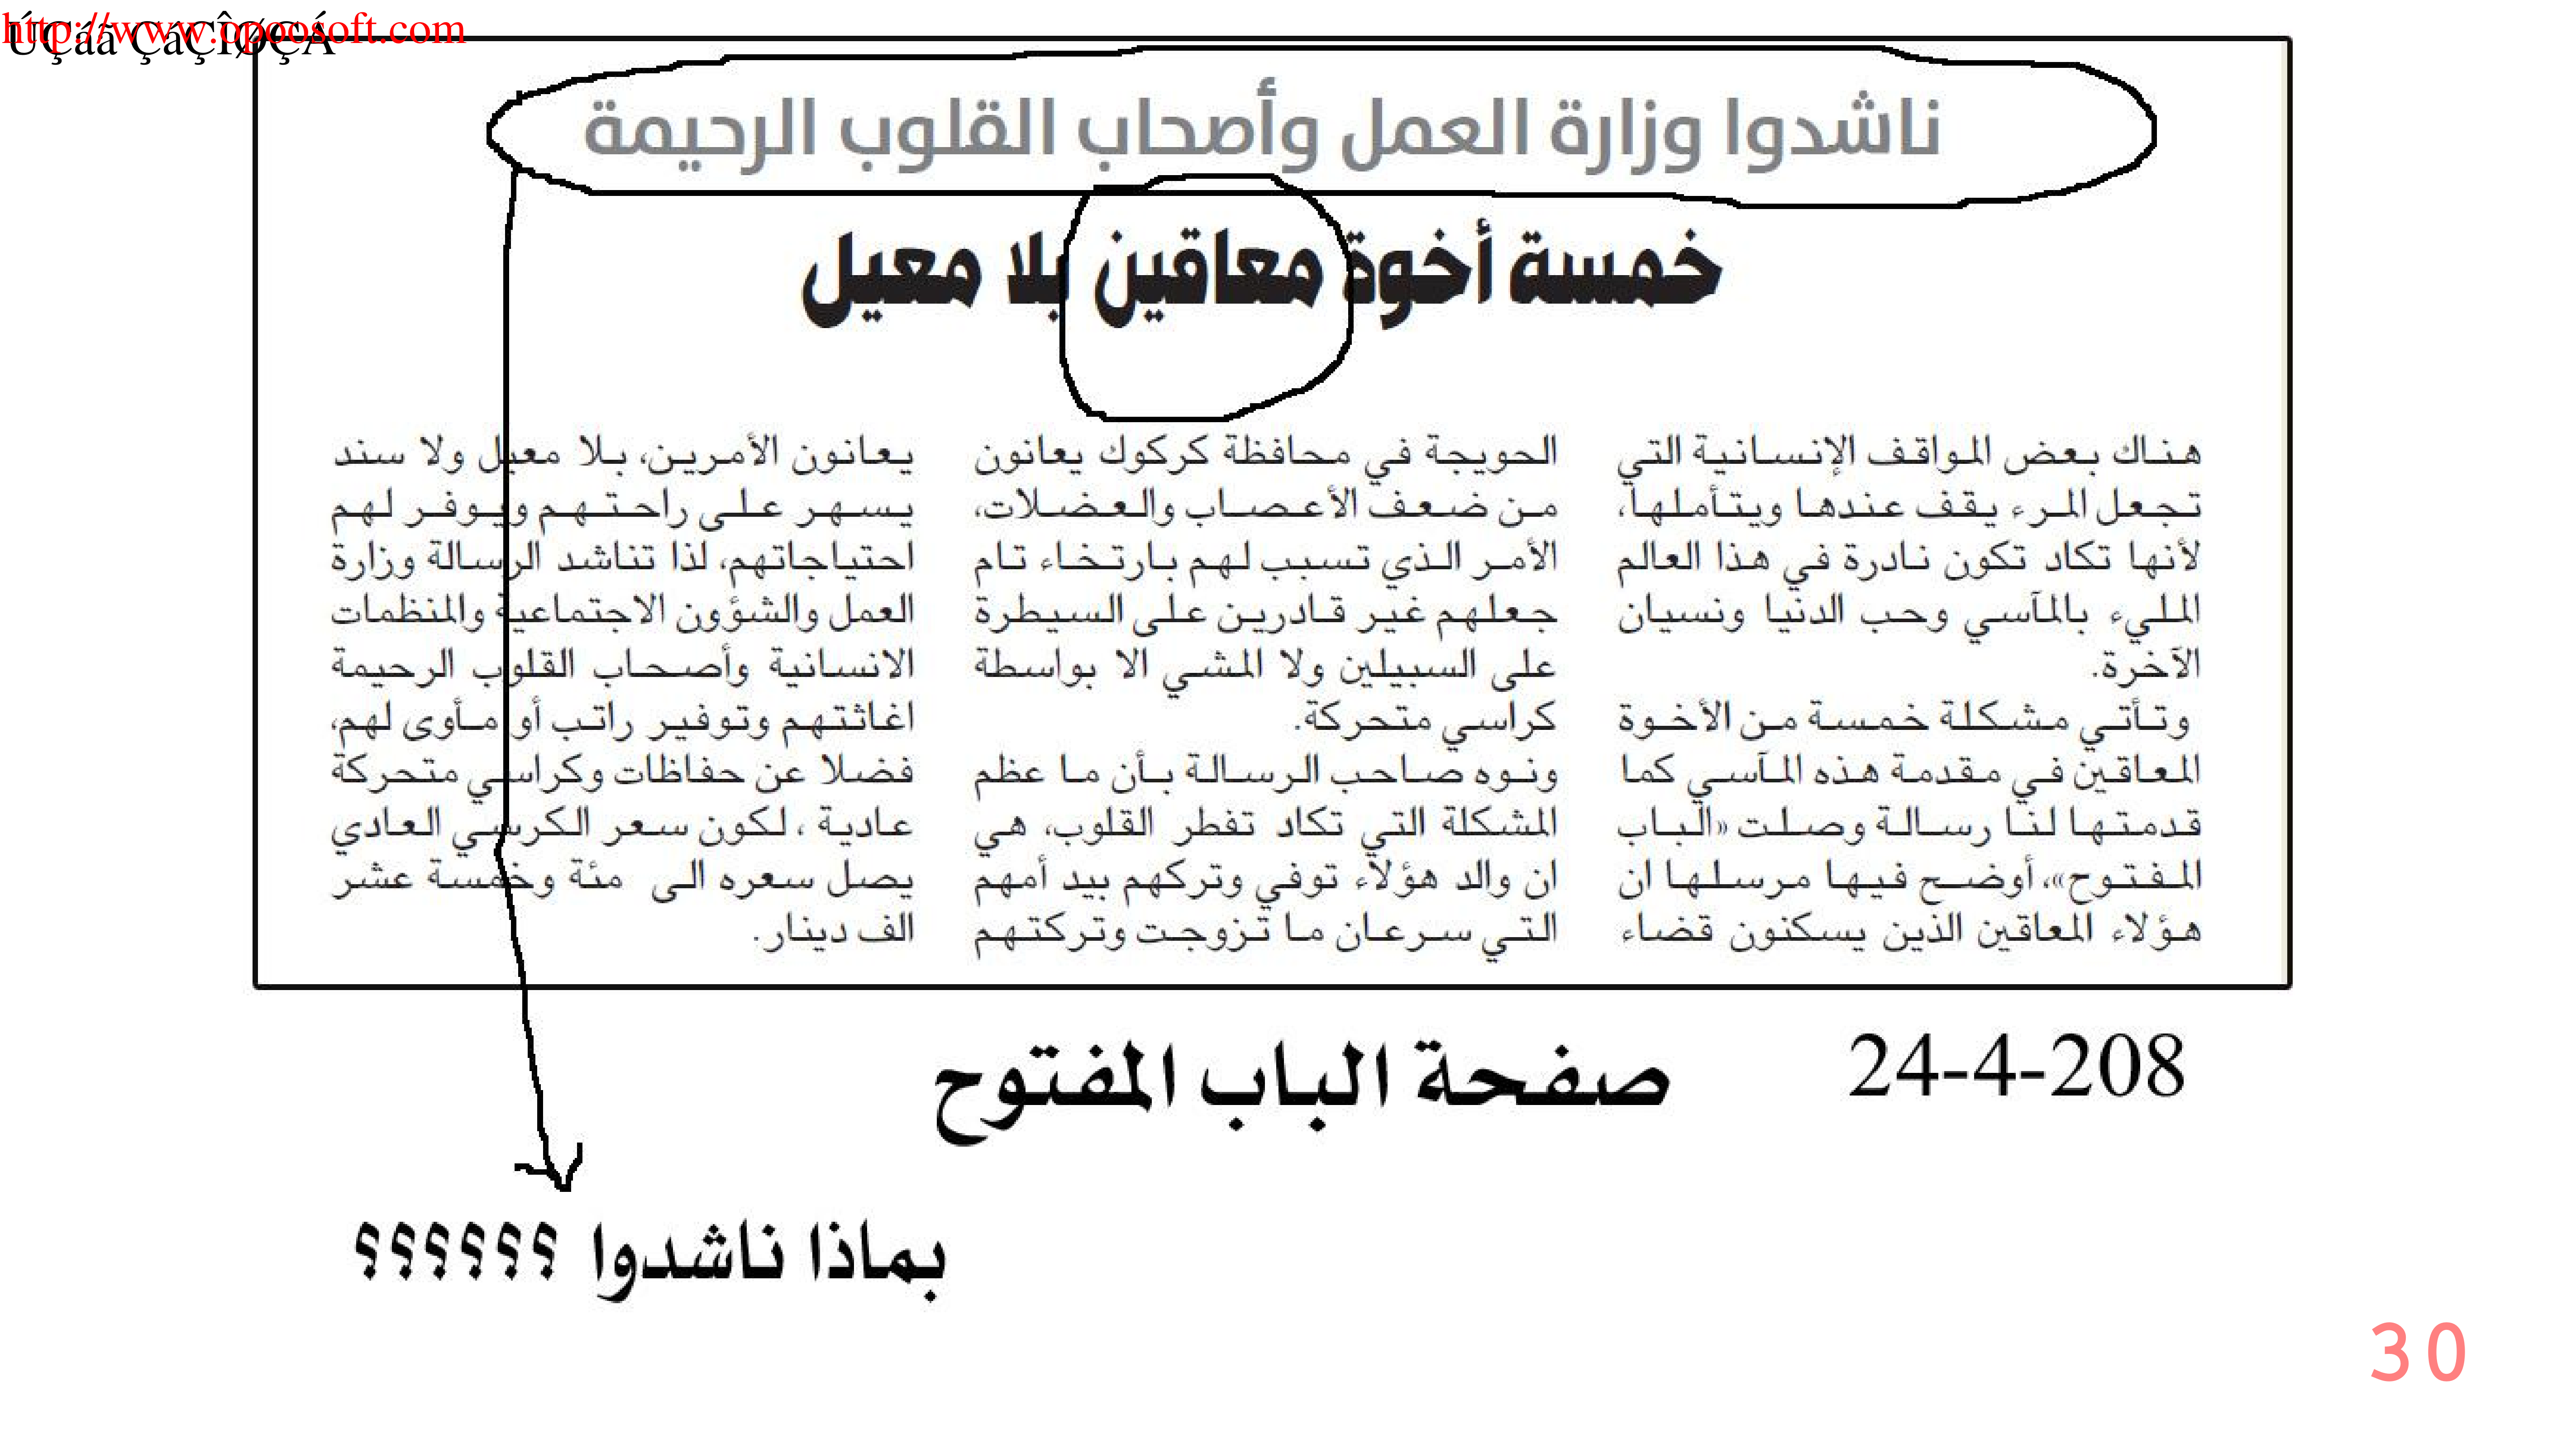 http://www.opoosoft.com
ÚÇáã ÇáÇÎØÇÁ
ناشدوا وزارة العمل وأصحاب القلوب الرحيمة
خمسة أخوة معاقين بلا معيل
هناك بعض المواقف الإنسانية التي
تجعل المرء يقف عندها ويتأملها،
لأنها تكاد تكون نادرة في هذا العالم
المليء بالمآسي وحب الدنيا ونسيان
الآخرة.
وتأتي مشكلة خمسة من الأخوة
المعاقين في مقدمة هذه المآسي كما
قدمتها لنا رسالة وصلت «الباب
المفتوح»، أوضح فيها مرسلها ان
هؤلاء المعاقين الذين يسكنون قضاء
الحويجة في محافظة كركوك يعانون
من ضعف الأعصاب والعضلات،
الأمر الذي تسبب لهم بارتخاء تام
جعلهم غير قادرين على السيطرة
على السبيلين ولا المشي الا بواسطة
كراسي متحركة.
ونوه صاحب الرسالة بأن ما عظم
المشكلة التي تكاد تفطر القلوب، هي
ان والد هؤلاء توفي وتركهم بيد أمهم
التي سرعان ما تزوجت وتركتهم
يعانون الأمرين، بلا معيل ولا سند
يسهر على راحتهم ويوفر لهم
احتياجاتهم، لذا تناشد الرسالة وزارة
العمل والشؤون الاجتماعية والمنظمات
الانسانية وأصحاب القلوب الرحيمة
اغاثتهم وتوفير راتب أو مأوى لهم،
فضلا عن حفاظات وكراسي متحركة
عادية ، لكون سعر الكرسي العادي
يصل سعره الى مئة وخمسة عشر
الف دينار.
24-4-208
صفحة الباب المفتوح
بماذا ناشدوا ؟؟؟؟؟؟
30